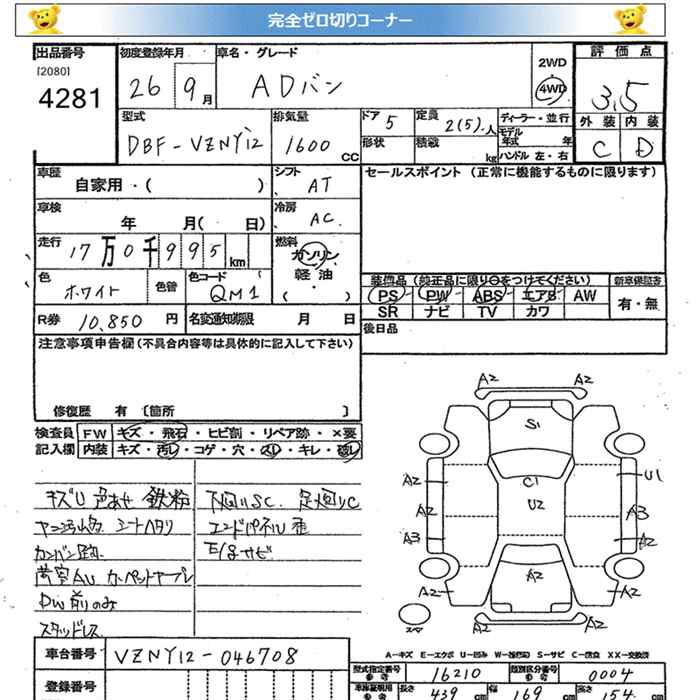 完全ゼロ切りコーナー
出品番号 初度登録年月 車名・グレード 評価点
[2080]
4281
26 9月 ADバン 2WD 4WD 3.5
型式 排気量 ドア 定員 ディーラー・並行 外装 内装
DBF-VZNY12 1600 CC 5 2(5).人 形状 積載 kg モデル年式 年 ハンドル 左・右 C D
車歴 自家用・( ) シフト AT セールスポイント (正常に機能するものに限ります)
車検 年 月( 日) 冷房 AC
走行 17万0千995km 燃料 ガソリン 軽油 ( )
色 ホワイト 色替 色コード QM1
装備品 (純正品に限り○をつけてください) 新車保証書
PS PW ABS エアB AW 有・無
SR ナビ TV カワ
R券 10,850 円 名変通知期限 月 日 後日品
注意事項申告欄(不具合内容等は具体的に記入して下さい)
修復歴 有 [箇所 ]
検査員 FW キズ・飛石・ヒビ割・リペア跡・×要
記入欄 内装 キズ・汚レ・コゲ・穴・スレ・キレ・破レ
キズU 色あせ 鉄粉 下廻りSC. 足廻りC
シートヘタリ エンドパネルU
カンバン跡
荷室AU カーペットヤブレ
PW前のみ
スタッドレス
A2 A2
S1
C1
A2 U1
U2
A2 A3
A3 A2
A2
A2 A2
スペア
A2 A2
A-キズ E-エクボ U-凹み W-補修跡 S-サビ C-腐食 XX-交換済
車台番号 VZNY12-046708
型式指定番号 参考 16210 類別区分番号 参考 0004
登録番号
車庫証明用 参考 長さ 439 cm 幅 169 cm 高さ 154 cm